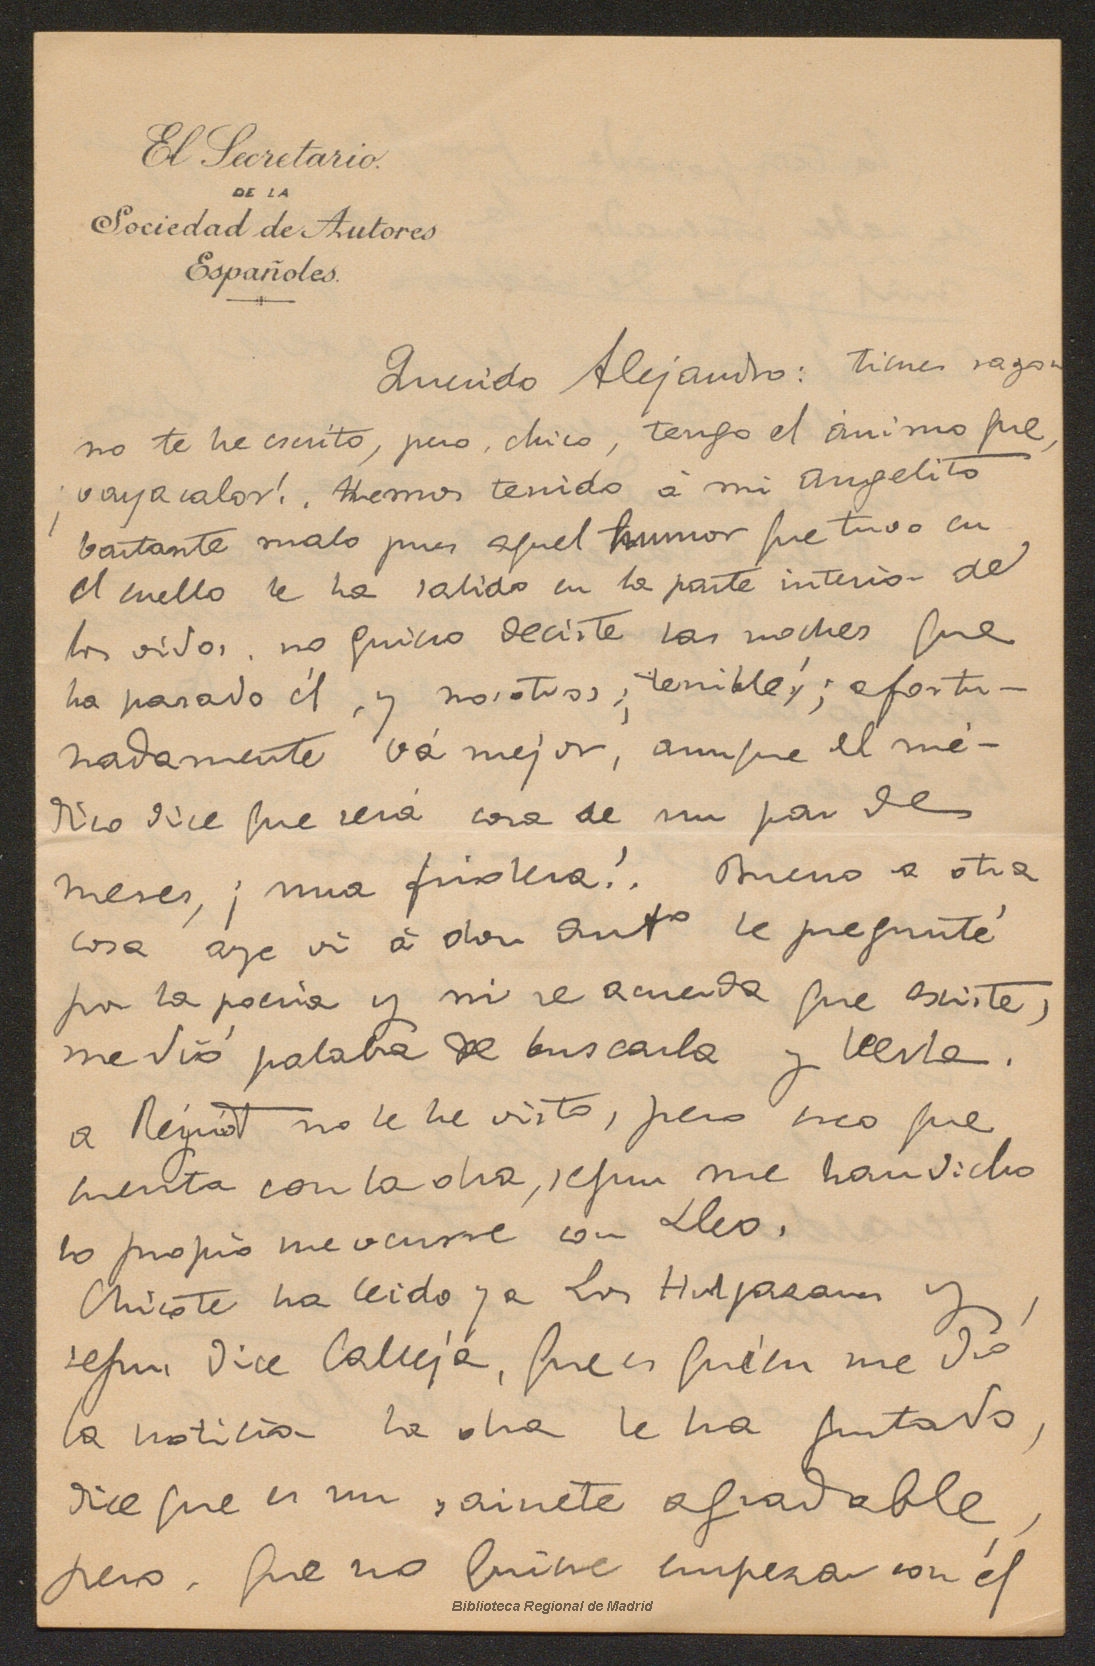 El Secretario.
DE LA
Sociedad de Autores
Españoles.
Querido Alejandro: tienes razon
no te he escrito, pero, chico, tengo el ánimo que,
¡vaya calor!. Hemos tenido á mi angelito
bastante malo pues aquel humor que tuvo en
el cuello le ha salido en la parte interior de
los oidos. no quiero decirte las noches que
ha pasado él, y nosotros; ¡terible!; afortu-
nadamente vá mejor, aunque el mé-
dico dice que será cosa de un par de
meses, ¡una friolera!. Bueno a otra
cosa aye vi á don Antº le pregunté
por la poesia y ni se acuerda que existe,
me dió palabra de buscarla y leerla.
a no le he visto, pero creo que
cuenta con la obra, segun me han dicho
lo propio me ocurre con Lleo.
Chicote ha leido ya Los y
segun dice Calleja, que es quién me dió
la noticia la obra le ha gustado,
dice que es un sainete agradable,
pero, que no quiere empezar con él
Biblioteca Regional de Madrid